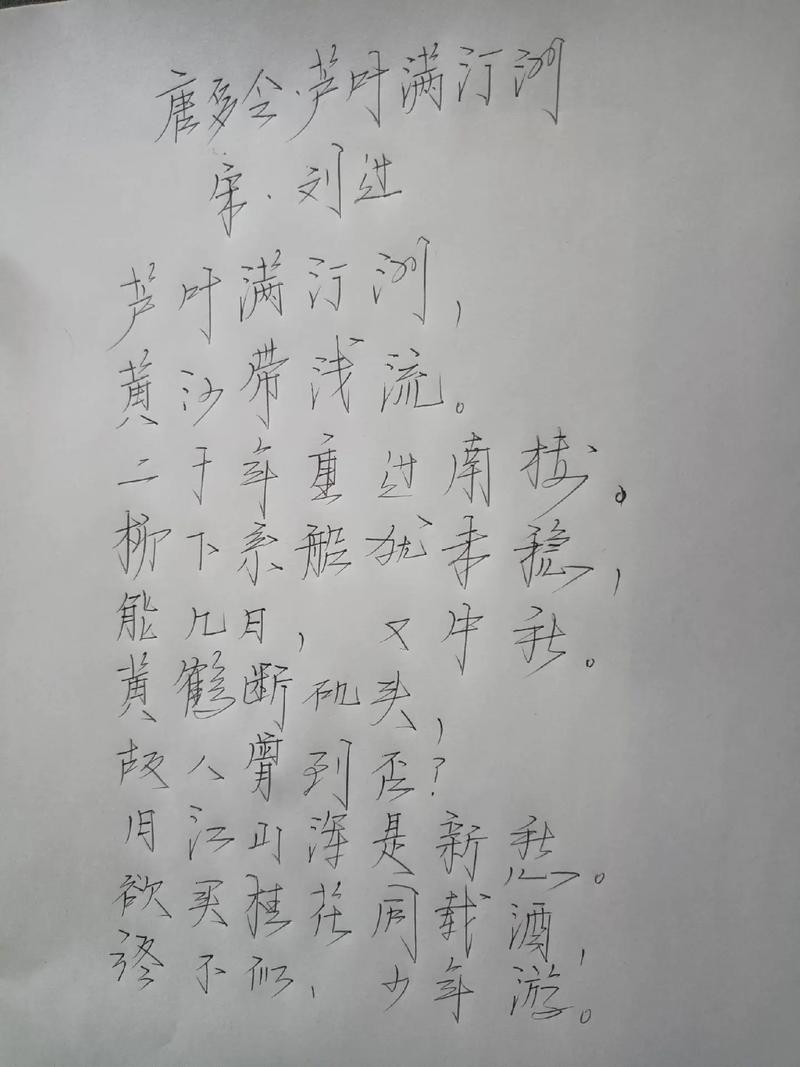 唐多令·芦叶满汀洲
宋·刘过
芦叶满汀洲，
黄沙带浅流。
二十年重过南楼。
柳下系船犹未稳，
能几日，又中秋。
黄鹤断矶头，
故人曾到否？
旧江山浑是新愁。
欲买桂花同载酒，
终不似，少年游。